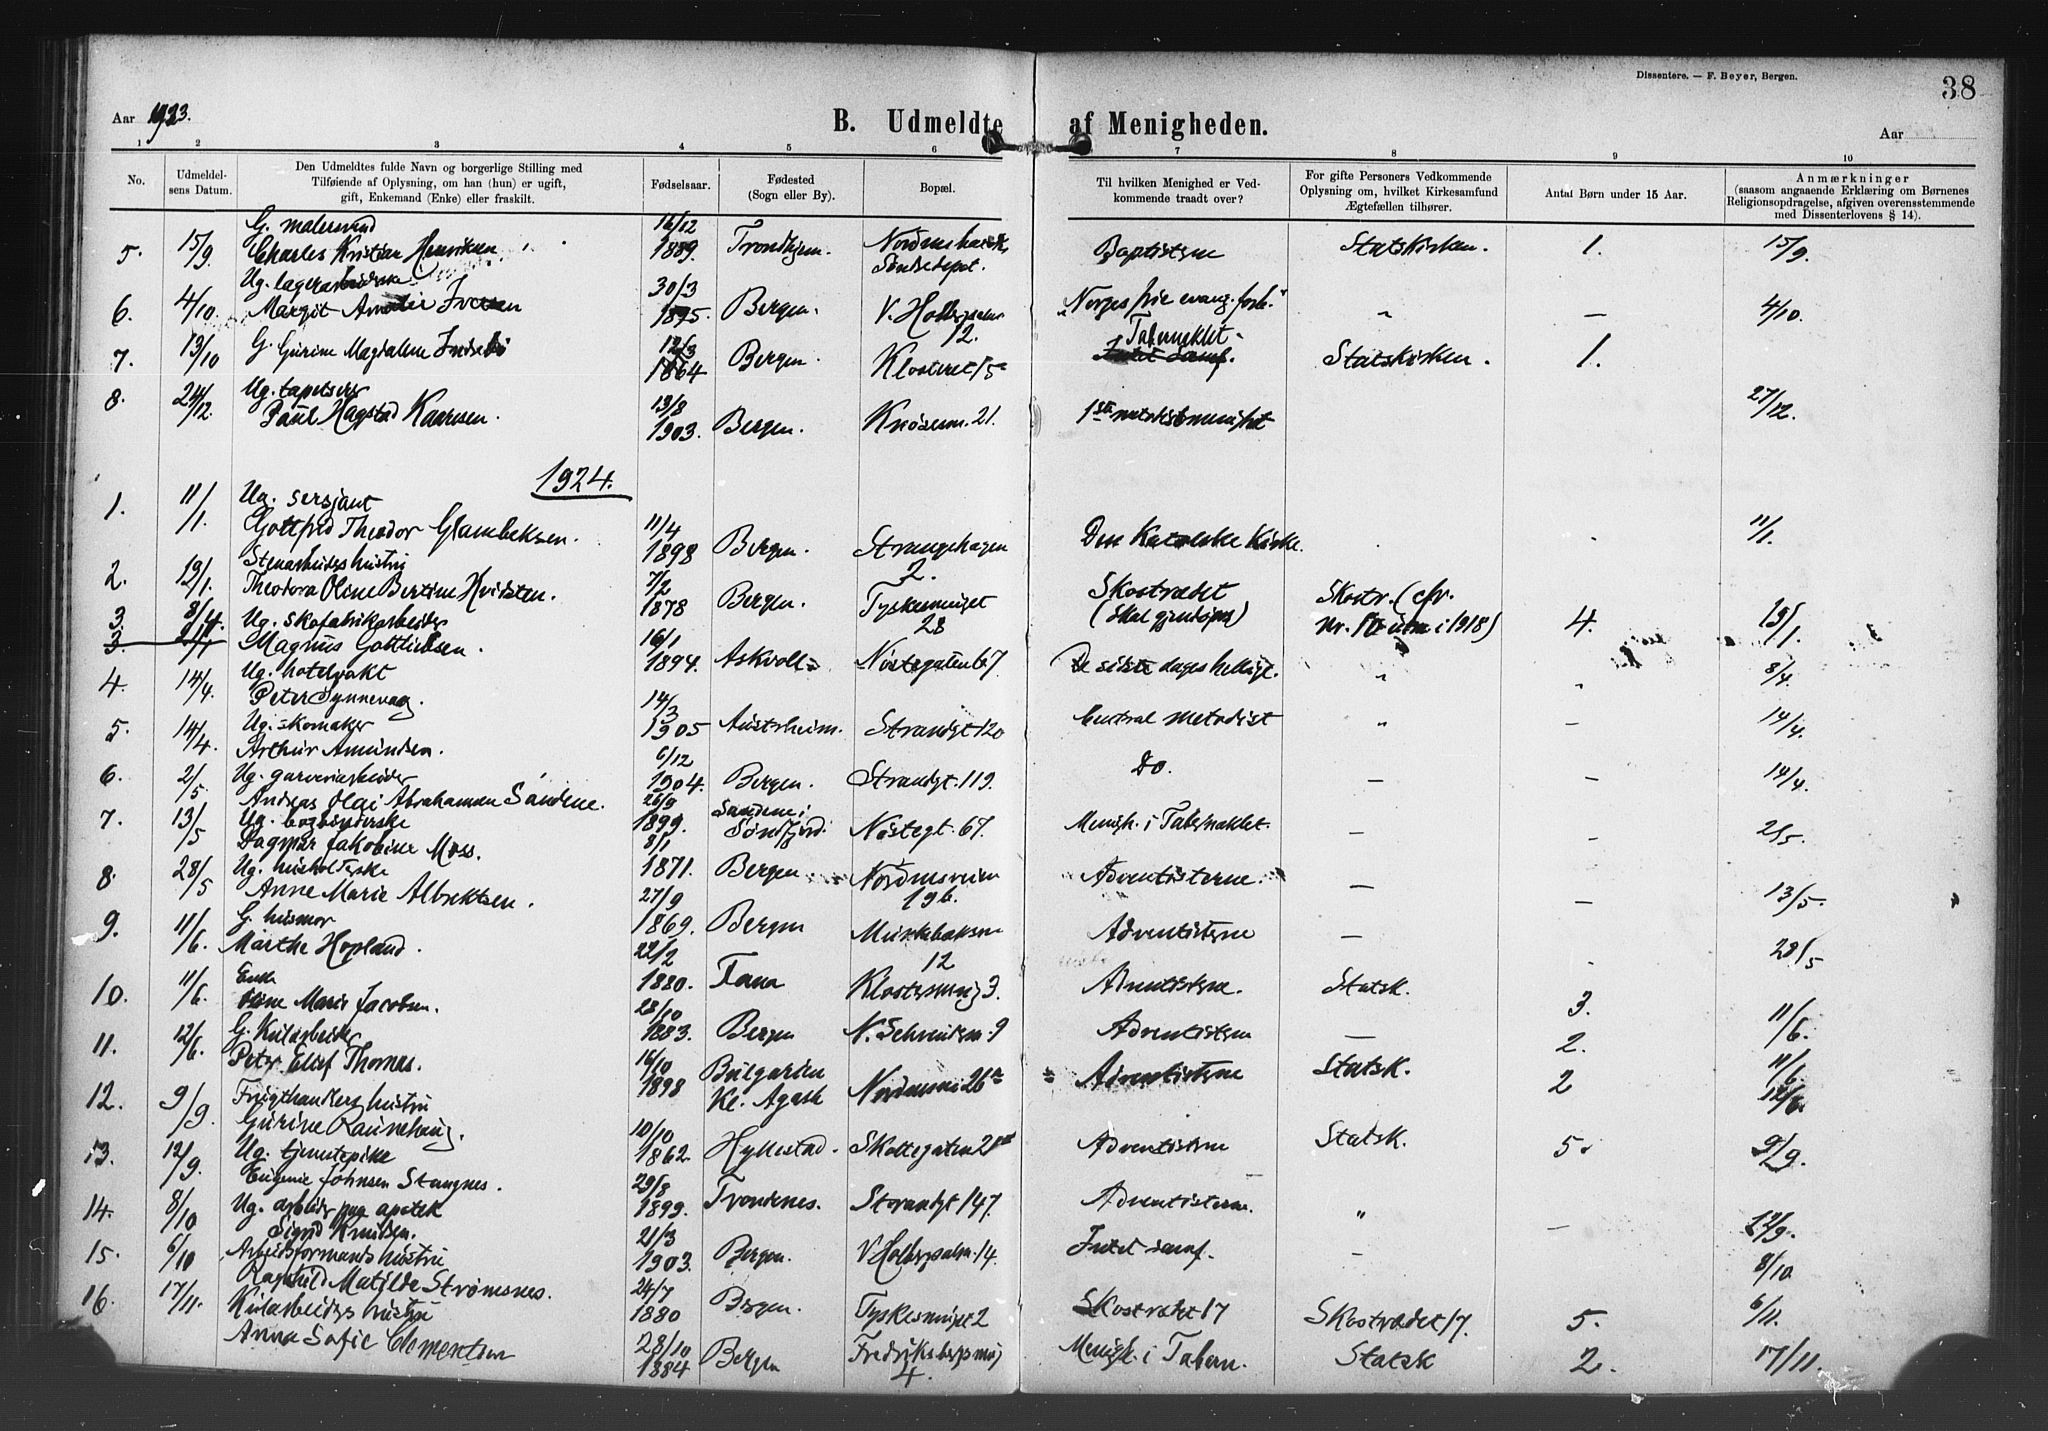 Dissentere. — F. Beyer, Bergen.
38
Aar 1923.
B. Udmeldte af Menigheden.
Aar
1 2 3 4 5 6 7 8 9 10
No.
Udmeldel-
sens Datum.
Den Udmeldtes fulde Navn og borgerlige Stilling med
Tilføiende af Oplysning, om han (hun) er ugift,
gift, Enkemand (Enke) eller fraskilt.
Fødselsaar.
Fødested
(Sogn eller By).
Bopæl.
Til hvilken Menighed er Ved-
kommende traadt over?
For gifte Personers Vedkommende
Oplysning om, hvilket Kirkesamfund
Ægtefællen tilhører.
Antal Børn under 15 Aar.
Anmærkninger
(saasom angaaende Erklæring om Børnenes
Religionsopdragelse, afgiven overensstemmende
med Dissenterlovens § 14).
G. malersvend 16/12
5. 15/9 Charles Kristian Henriksen 1889. Trondhjem. Baptisterne Statskirken. 1. 15/9.
Ug. lagerarbeiderske 30/3
6. 4/10. Margit Amalie Iversen 1895. Bergen. V. Holbergsalm. 12. "Norges frie evang. forb." " — 4/10.
12/3 Tabernaklet.
7. 13/10 G. Gurine Magdalene Indsebø 1864 Bergen. Klosteret 15 Statskirken. 1.
Ug. tapetserer 13/8
8. 24/12. Paul Hagstad Kaarsen. 1903. Bergen. Knøsesm. 21. 1ste metodistmenighet 27/12.
1924.
1. 11/1. Ug. sersjant 11/4
Gottfred Theodor Glambeksen. 1898 Bergen. Strangehagen 2. Den Katolske Kirke. 11/1.
Stenarbeiders hustru 7/2
2. 19/1. Theodora Oline Bertine Hvidsten. 1878 Bergen. Tyskesmuget 28 Skostrædet Skostr. (cfr.
(Skal gjendøpes) Nr. utm i 1918) 4. 19/1.
3. 8/4. Ug. skofabrikarbeider 16/1
Magnus Gottliebsen. 1894. Askvoll Nøstegaten 67 De sidste dages hellige. " 8/4.
4. 14/4. Ug. hotelvakt 14/3
Peter Synnevaag. 1905 Austrheim. Strandgt 120 Central Metodist " — 14/4.
5. 14/4. Ug. skomaker 6/12
Arthur Amundsen. 1904. Bergen. Strandgt. 119. Do. — — 14/4.
6. 2/5 Ug. garveriarbeider 26/9
Andreas Olai Abrahamsen Sandene. 1899. Sandene i Søndfjord. Nøstegt. 67. Menigh. i Tabernaklet. — — 2/5.
7. 13/5 Ug. bogbinderske 8/1
Dagmar Jakobine Moss. 1871. Bergen Nordnesveien 19b. Adventisterne. — — 13/5.
8. 28/5 Ug. husholderske 27/9
Anne Marie Albrektsen. 1869. Bergen 12 Adventisterne — 28/5
9. 11/6. G. husmor 22/2
Marthe Hopland. 1880. Fana Klostersmug 3. Adventisterne. Statsk. 3. 11/6.
10. 11/6. Enke 28/10
Oline Marie Jacobsen. 1883. Bergen 9 Adventistern — 2. 11/6
11. 12/6. G. Kularbeider 16/10
Peter Elief Thornes. 1898 Bulgarien Kl. Agash Nordnesvei 26a Adventisterne Statsk. 2 12/6.
12. 9/9. Frugthandlers hustru 10/10
Gurine Raunehaug. 1862. Hyllestad. Skottegaten 21 Adventisterne Statsk. 5. 9/9.
13. 12/9. Ug. tjenestepike 29/8
Eugenie Johnsen Stangnes. 1899. Trondenes. Strandgt 147. Adventisterne. " — 12/9.
14. 8/10 Ug. arbeider paa apotek 21/3
Sigrid Knudsen. 1903. Bergen. V Holbergsalm. 14. Intet samf. — 8/10.
15. 6/10 Arbeidsformands hustru 24/7
Ragnhild Matilde Strømsnes. 1880 Bergen. Tyskesmuget 2 Skostrædet 17 Skostrædet 17. 5. 6/11.
16. 17/11. Kularbeiders hustru 28/10
Anna Sofie Clementsen 1884 Bergen Fredriksbergsmug 4. Menigh. i Tabern. Statsk 2. 17/11.